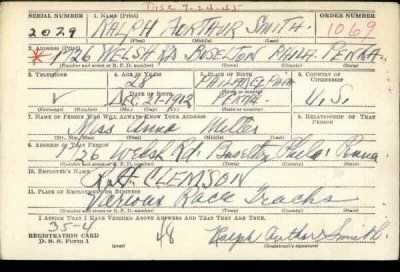 Disc 9-24-45
SERIAL NUMBER 1. NAME (Print) ORDER NUMBER
2029 RALPH ARTHUR SMITH 1069
(First) (Middle) (Last)
2. ADDRESS (Print)
* 1926 WELSH RD BUSELTON PHILA. PENNA.
(Number and street or R. F. D. number) (Town) (County) (State)
3. TELEPHONE 4. AGE IN YEARS 5. PLACE OF BIRTH 6. COUNTRY OF CITIZENSHIP
27 PHILADELPHIA
DATE OF BIRTH (Town or county)
DEC. 1912 PENNA. U.S.
(Exchange) (Number) (Mo.) (Day) (Yr.) (State or country)
7. NAME OF PERSON WHO WILL ALWAYS KNOW YOUR ADDRESS 8. RELATIONSHIP OF THAT PERSON
Miss Anna
(Mr., Mrs., Miss) (First) (Middle) (Last)
9. ADDRESS OF THAT PERSON
1926 Welsh Rd. Phila. Penna.
(Number and street or R. F. D. number) (Town) (County) (State)
10. EMPLOYER'S NAME
CLEMSON
11. PLACE OF EMPLOYMENT OR BUSINESS
Various Race Tracks
(Number and street or R. F. D. number) (Town) (County) (State)
I AFFIRM THAT I HAVE VERIFIED ABOVE ANSWERS AND THAT THEY ARE TRUE.
35-4
REGISTRATION CARD
D. S. S. Form 1 (over) 48 Ralph Arthur Smith
(Registrant's signature)